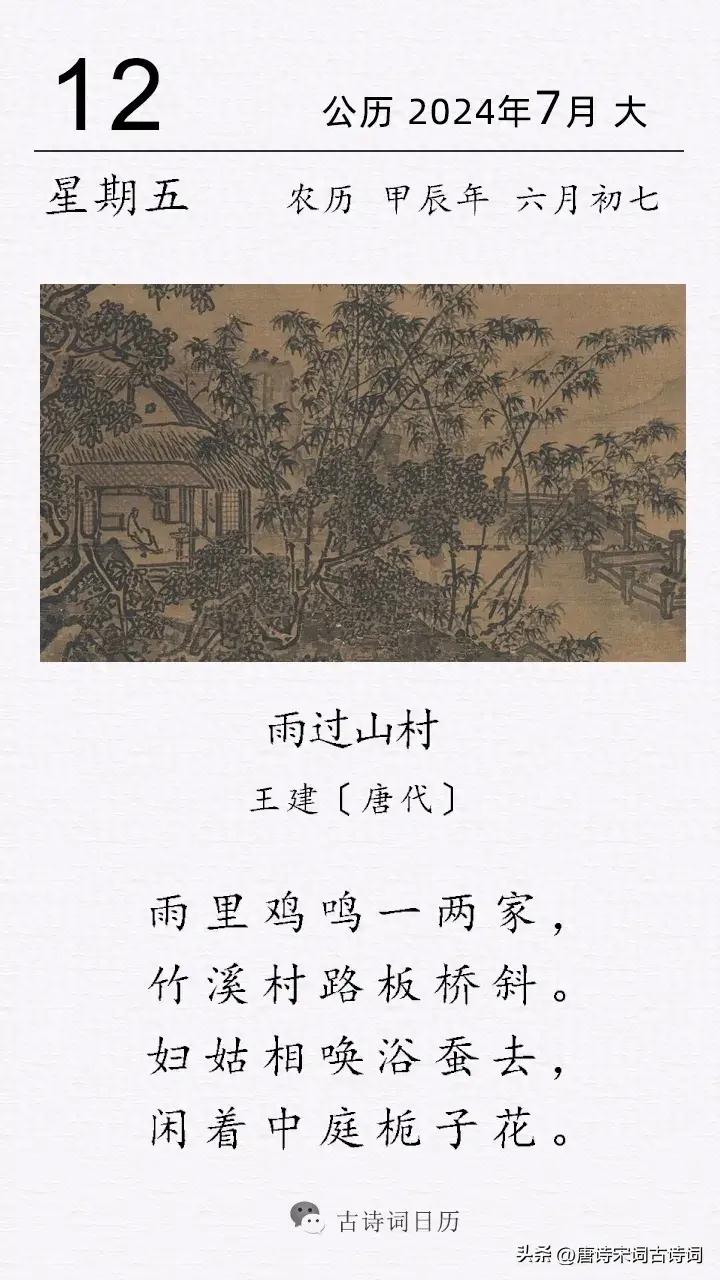 12
公历 2024年7月 大
星期五
农历 甲辰年 六月初七
雨过山村
王建〔唐代〕
雨里鸡鸣一两家，
竹溪村路板桥斜。
妇姑相唤浴蚕去，
闲着中庭栀子花。
古诗词日历
头条 @唐诗宋词古诗词